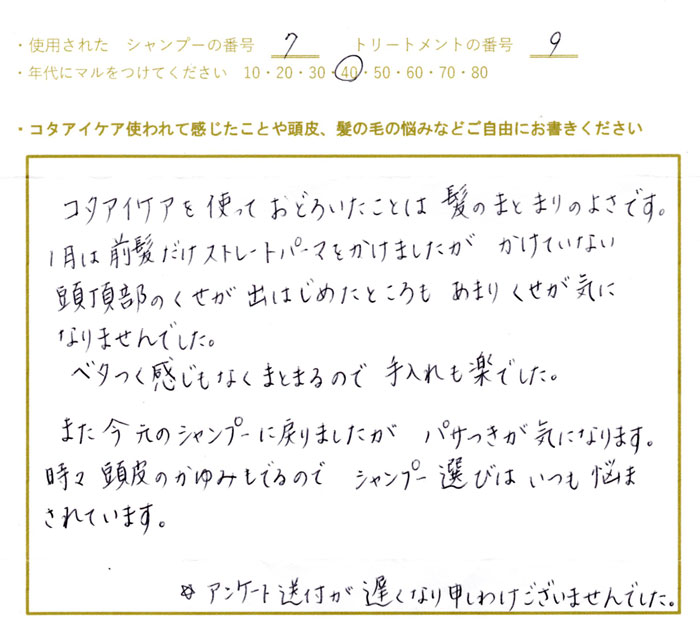 ・使用された シャンプーの番号 7 トリートメントの番号 9
・年代にマルをつけてください 10・20・30・40・50・60・70・80
・コタアイケア使われて感じたことや頭皮、髪の毛の悩みなどご自由にお書きください
コタアイケアを使っておどろいたことは 髪のまとまりのよさです。
1月は前髪だけストレートパーマをかけましたが かけていない
頭頂部のくせが出はじめたところも あまりくせが気に
なりませんでした。
ベタつく感じもなくまとまるので 手入れも楽でした。
また今元のシャンプーに戻りましたが パサつきが気になります。
時々頭皮のかゆみもでるので シャンプー選びはいつも悩ま
されています。
※アンケート送付が遅くなり申しわけございませんでした。